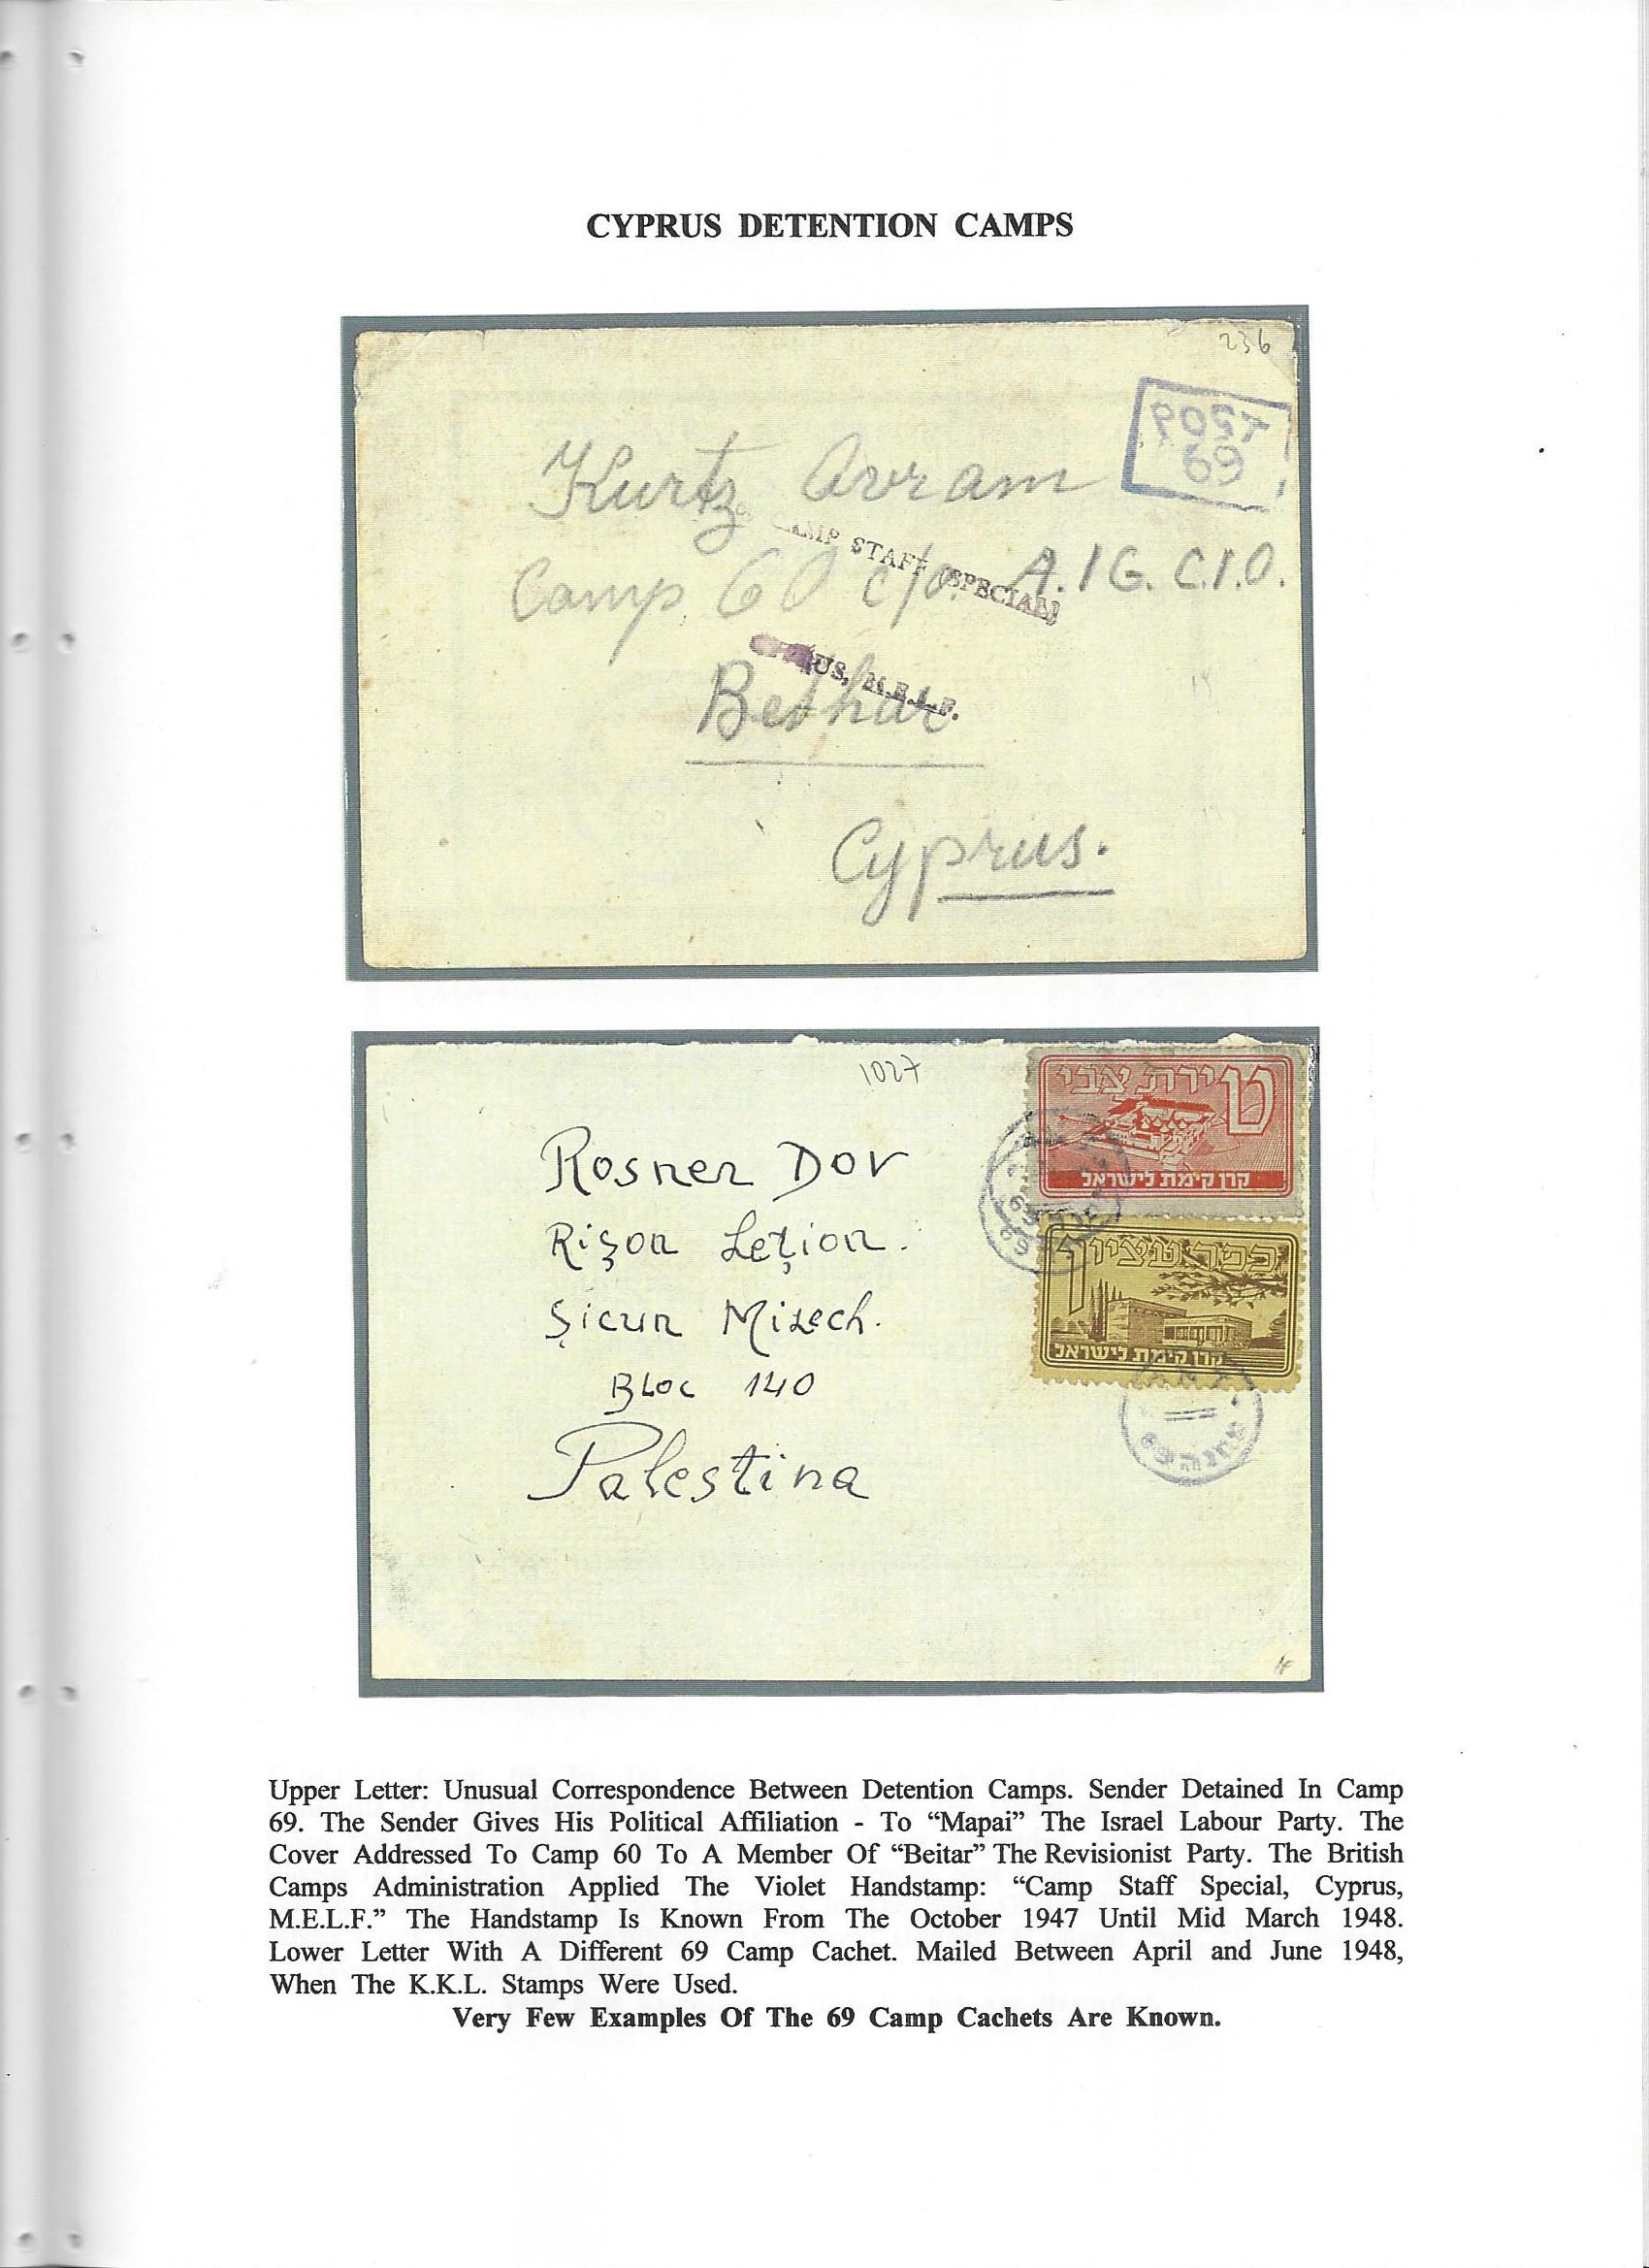 CYPRUS DETENTION CAMPS
236
POST
69
Kurtz Avram
CAMP STAFF (SPECIAL)
Camp 60 c/o. A.I G. C.I.O.
US, M.E.L.F.
Bethar
Cyprus.
1027
טירת צבי
קרן קימת לישראל
Rosner Dov
Rişon Leţion.
Şicun Mizrech.
Bloc 140
Palestina
כפר עציון
קרן קימת לישראל
Upper Letter: Unusual Correspondence Between Detention Camps. Sender Detained In Camp
69. The Sender Gives His Political Affiliation - To “Mapai” The Israel Labour Party. The
Cover Addressed To Camp 60 To A Member Of “Beitar” The Revisionist Party. The British
Camps Administration Applied The Violet Handstamp: “Camp Staff Special, Cyprus,
M.E.L.F.” The Handstamp Is Known From The October 1947 Until Mid March 1948.
Lower Letter With A Different 69 Camp Cachet. Mailed Between April and June 1948,
When The K.K.L. Stamps Were Used.
Very Few Examples Of The 69 Camp Cachets Are Known.